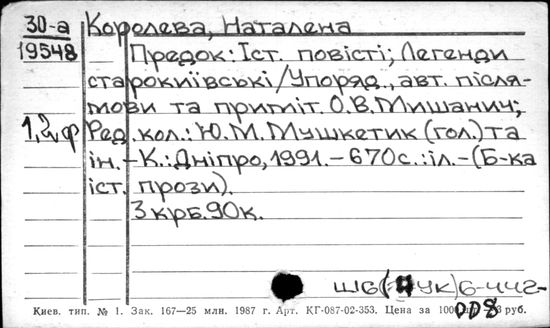 30-а Королева, Наталена
19548 Предок: Іст. повісті; Легенди
старокиївські/Упоряд., авт. після-
мови та приміт. О.В.Мишанич;
1,2,ф Ред. кол.: Ю.М.Мушкетик (гол.) та
ін. – К.: Дніпро, 1991. – 670с.: іл. – (Б-ка
іст. прози).
3 крб. 90к.
Ш6( УК)6-442-
008
Киев. тип. № 1. Зак. 167—25 млн. 1987 г. Арт. КГ-087-02-353. Цена за 1000 руб.